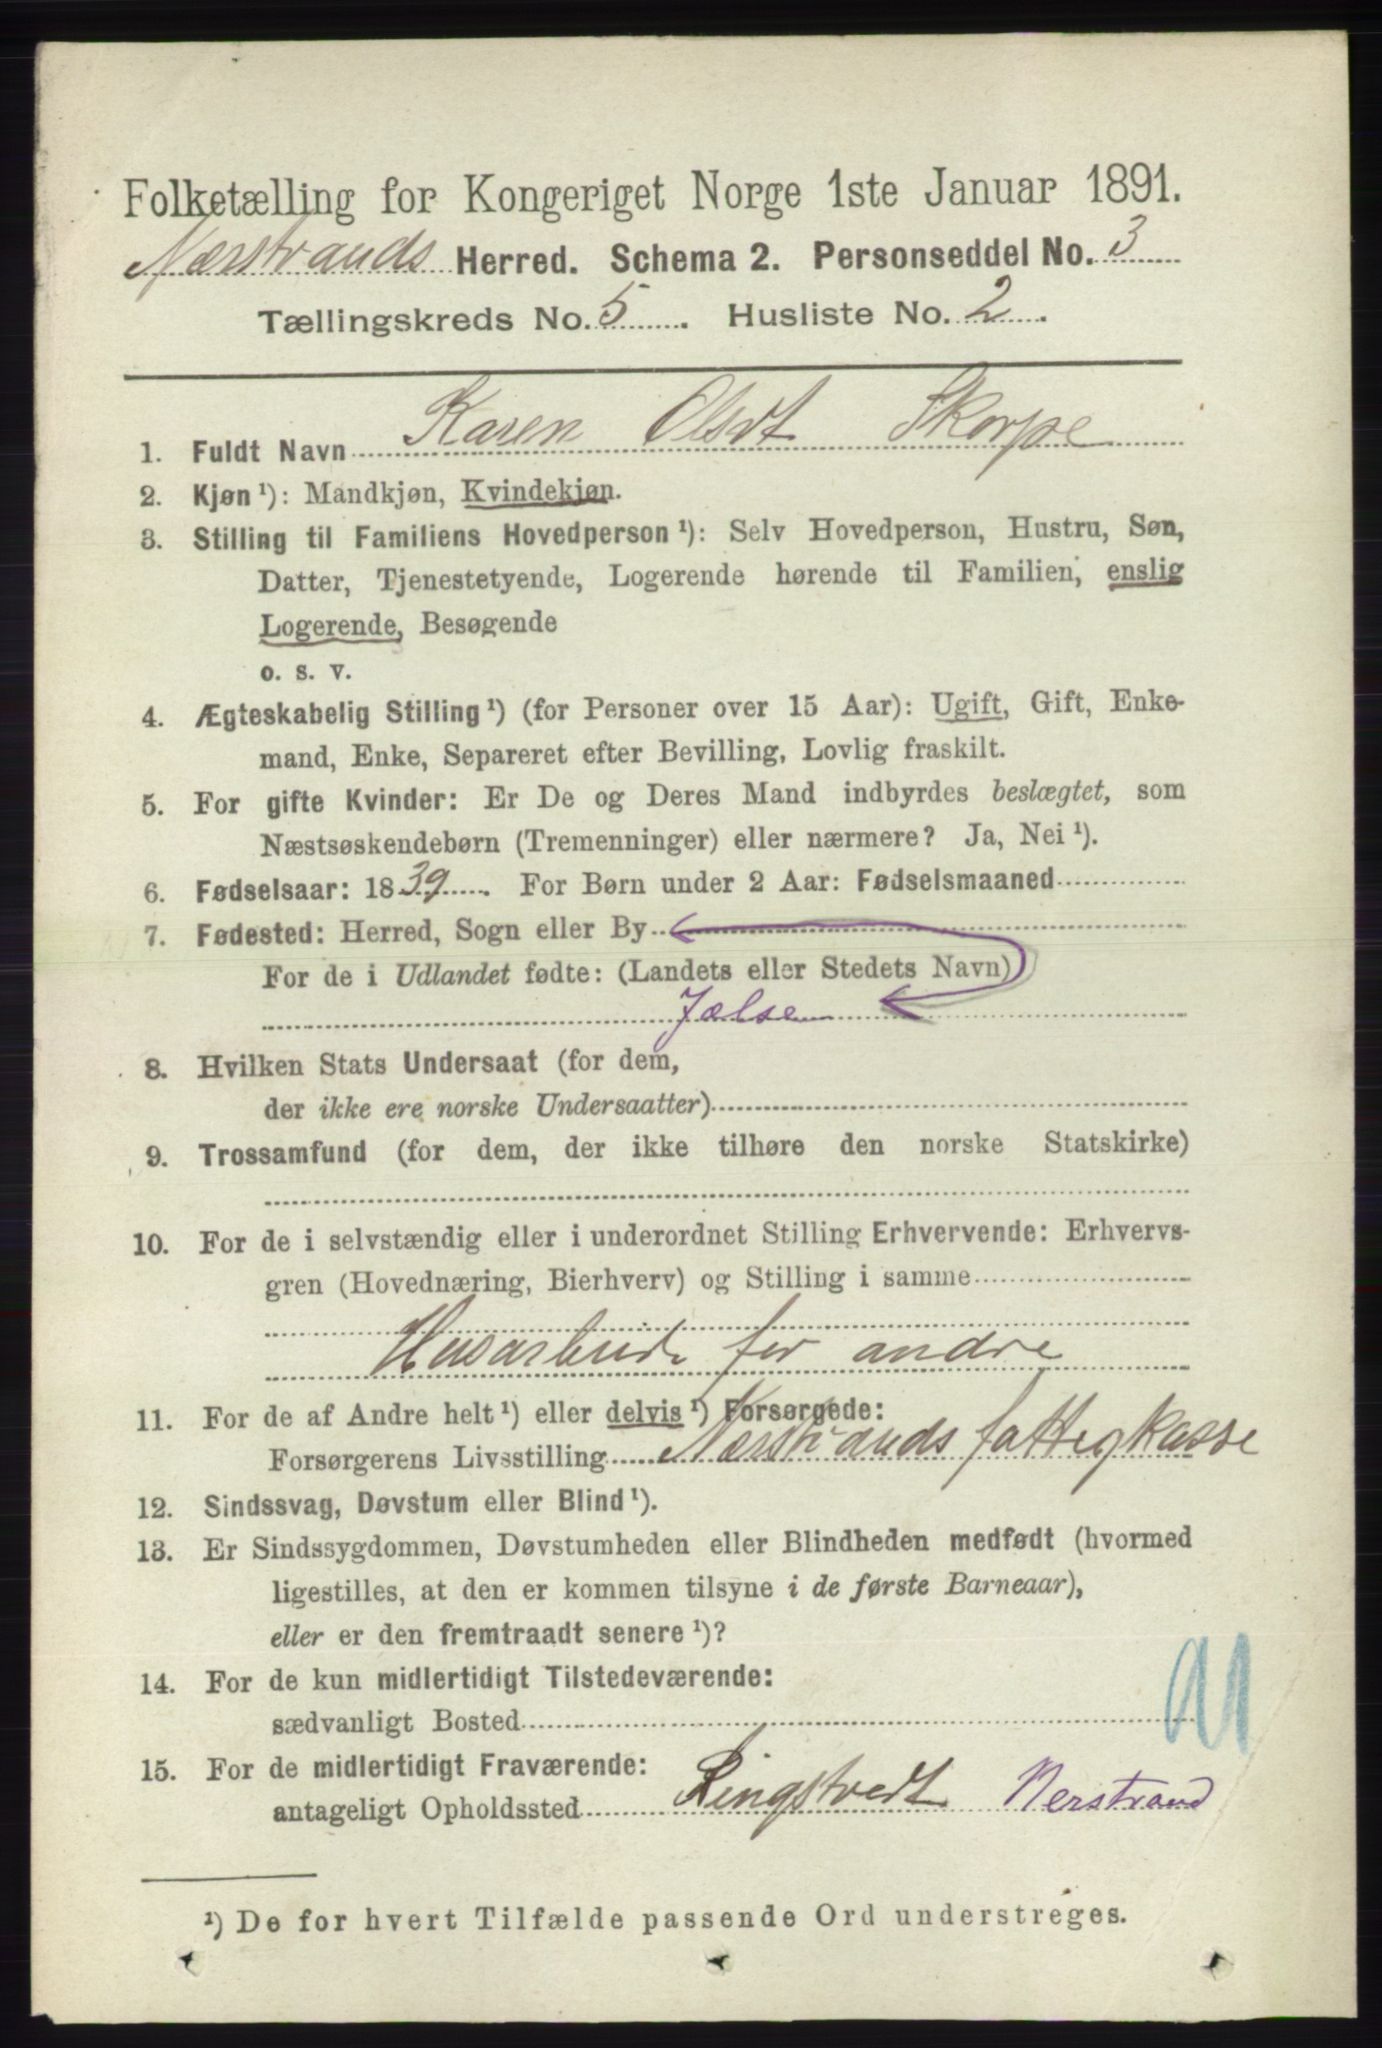 Folketælling for Kongeriget Norge 1ste Januar 1891.
Nærstrands Herred. Schema 2. Personseddel No. 3
Tællingskreds No. 5. Husliste No. 2.
1. Fuldt Navn Karen Olsdt Skorpe
2. Kjøn ¹): Mandkjøn, Kvindekjøn.
3. Stilling til Familiens Hovedperson ¹): Selv Hovedperson, Hustru, Søn,
Datter, Tjenestetyende, Logerende hørende til Familien, enslig
Logerende, Besøgende
o. s. v.
4. Ægteskabelig Stilling ¹) (for Personer over 15 Aar): Ugift, Gift, Enke-
mand, Enke, Separeret efter Bevilling, Lovlig fraskilt.
5. For gifte Kvinder: Er De og Deres Mand indbyrdes beslægtet, som
Næstsøskendebørn (Tremenninger) eller nærmere? Ja, Nei ¹).
6. Fødselsaar: 1839. For Børn under 2 Aar: Fødselsmaaned
7. Fødested: Herred, Sogn eller By
For de i Udlandet fødte: (Landets eller Stedets Navn)
Jælse
8. Hvilken Stats Undersaat (for dem,
der ikke ere norske Undersaatter)
9. Trossamfund (for dem, der ikke tilhøre den norske Statskirke)
10. For de i selvstændig eller i underordnet Stilling Erhvervende: Erhvervs-
gren (Hovednæring, Bierhverv) og Stilling i samme
Husarbeide for andre
11. For de af Andre helt ¹) eller delvis ¹) Forsørgede:
Forsørgerens Livsstilling Nærstrands fattigkasse
12. Sindssvag, Døvstum eller Blind ¹).
13. Er Sindssygdommen, Døvstumheden eller Blindheden medfødt (hvormed
ligestilles, at den er kommen tilsyne i de første Barneaar),
eller er den fremtraadt senere ¹)?
14. For de kun midlertidigt Tilstedeværende:
sædvanligt Bosted
15. For de midlertidigt Fraværende:
antageligt Opholdssted Ringstvedt Nerstrand
¹) De for hvert Tilfælde passende Ord understreges.